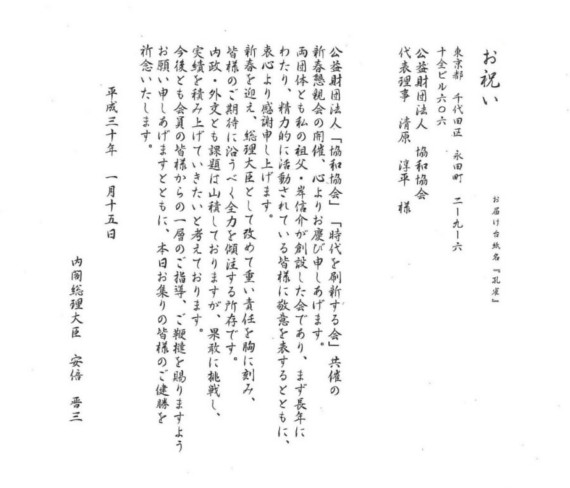 お届け台紙名『孔雀』
お祝い
東京都　千代田区　永田町　二ー九ー六
十全ビル六〇六
公益財団法人　協和協会
代表理事　清原　淳平　様
公益財団法人「協和協会」「時代を刷新する会」共催の
新春懇親会の開催、心よりお慶び申しあげます。
両団体とも私の祖父・岸信介が創設した会であり、まず長年に
わたり、精力的に活動されている皆様に敬意を表するとともに、
衷心より感謝申し上げます。
新春を迎え、総理大臣として改めて重い責任を胸に刻み、
皆様のご期待に沿うべく全力を傾注する所存です。
内政・外交とも課題は山積しておりますが、果敢に挑戦し、
実績を積み上げていきたいと考えております。
今後とも会員の皆様からの一層のご指導、ご鞭撻を賜りますよう
お願い申しあげますとともに、本日お集りの皆様のご健勝を
祈念いたします。
平成三十年　一月十五日
内閣総理大臣　安倍　晋三